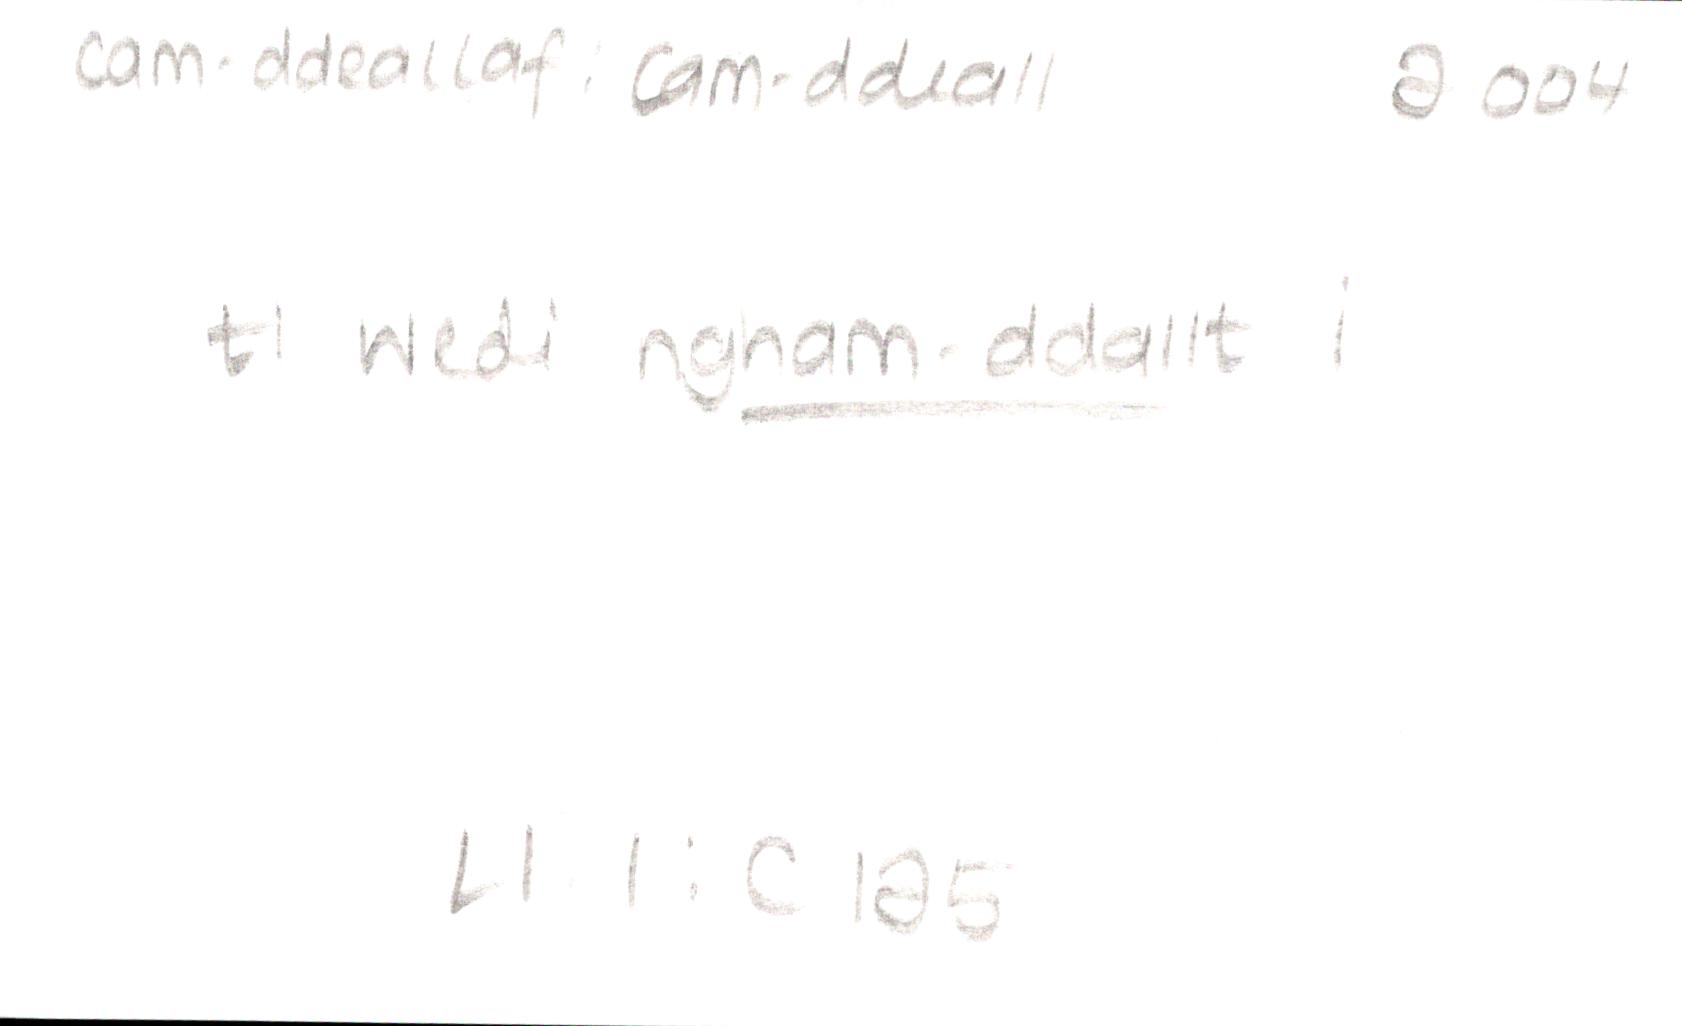 cam-ddeallaf: cam-ddeall 2004
ti wedi ngham-ddallt i
Ll 1:C 125